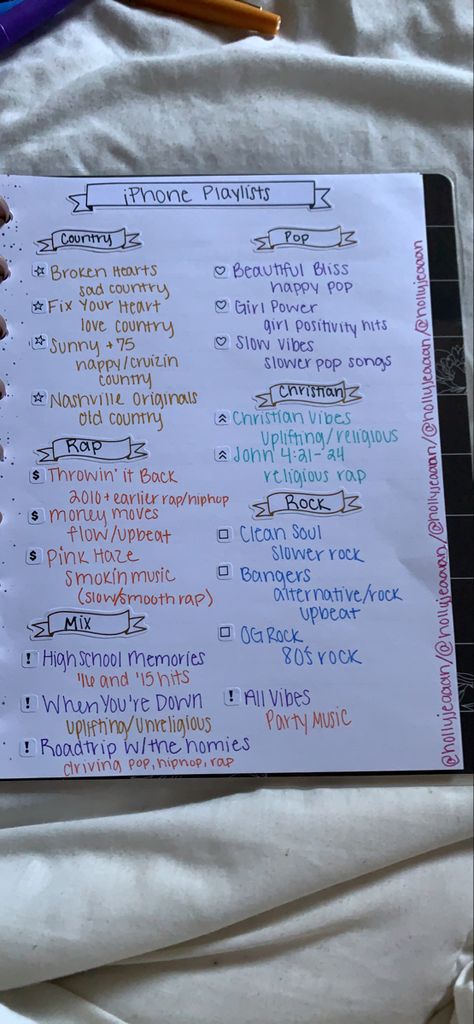 iPhone Playlists
Country
Broken Hearts
sad country
Fix Your Heart
love country
Sunny + 75
happy/cruizin
country
Nashville Originals
old country
Rap
Throwin' it Back
2010 + earlier rap/hiphop
money moves
flow/upbeat
Pink Haze
smokin music
(slow/smooth rap)
Mix
High School Memories
'16 and '15 hits
When You're Down
uplifting/unreligious
Roadtrip w/the homies
driving pop, hiphop, rap
Pop
Beautiful Bliss
happy pop
Girl Power
girl positivity hits
Slow Vibes
slower pop songs
Christian
Christian Vibes
Uplifting/religious
John 4:21-'24
religious rap
Rock
Clean Soul
slower rock
Bangers
alternative/rock
upbeat
OG Rock
80's rock
All Vibes
Party Music
@hollyjeaaan/@hollyjeaaan/@hollyjeaaan/@hollyjeaaan/@hollyjeaaan